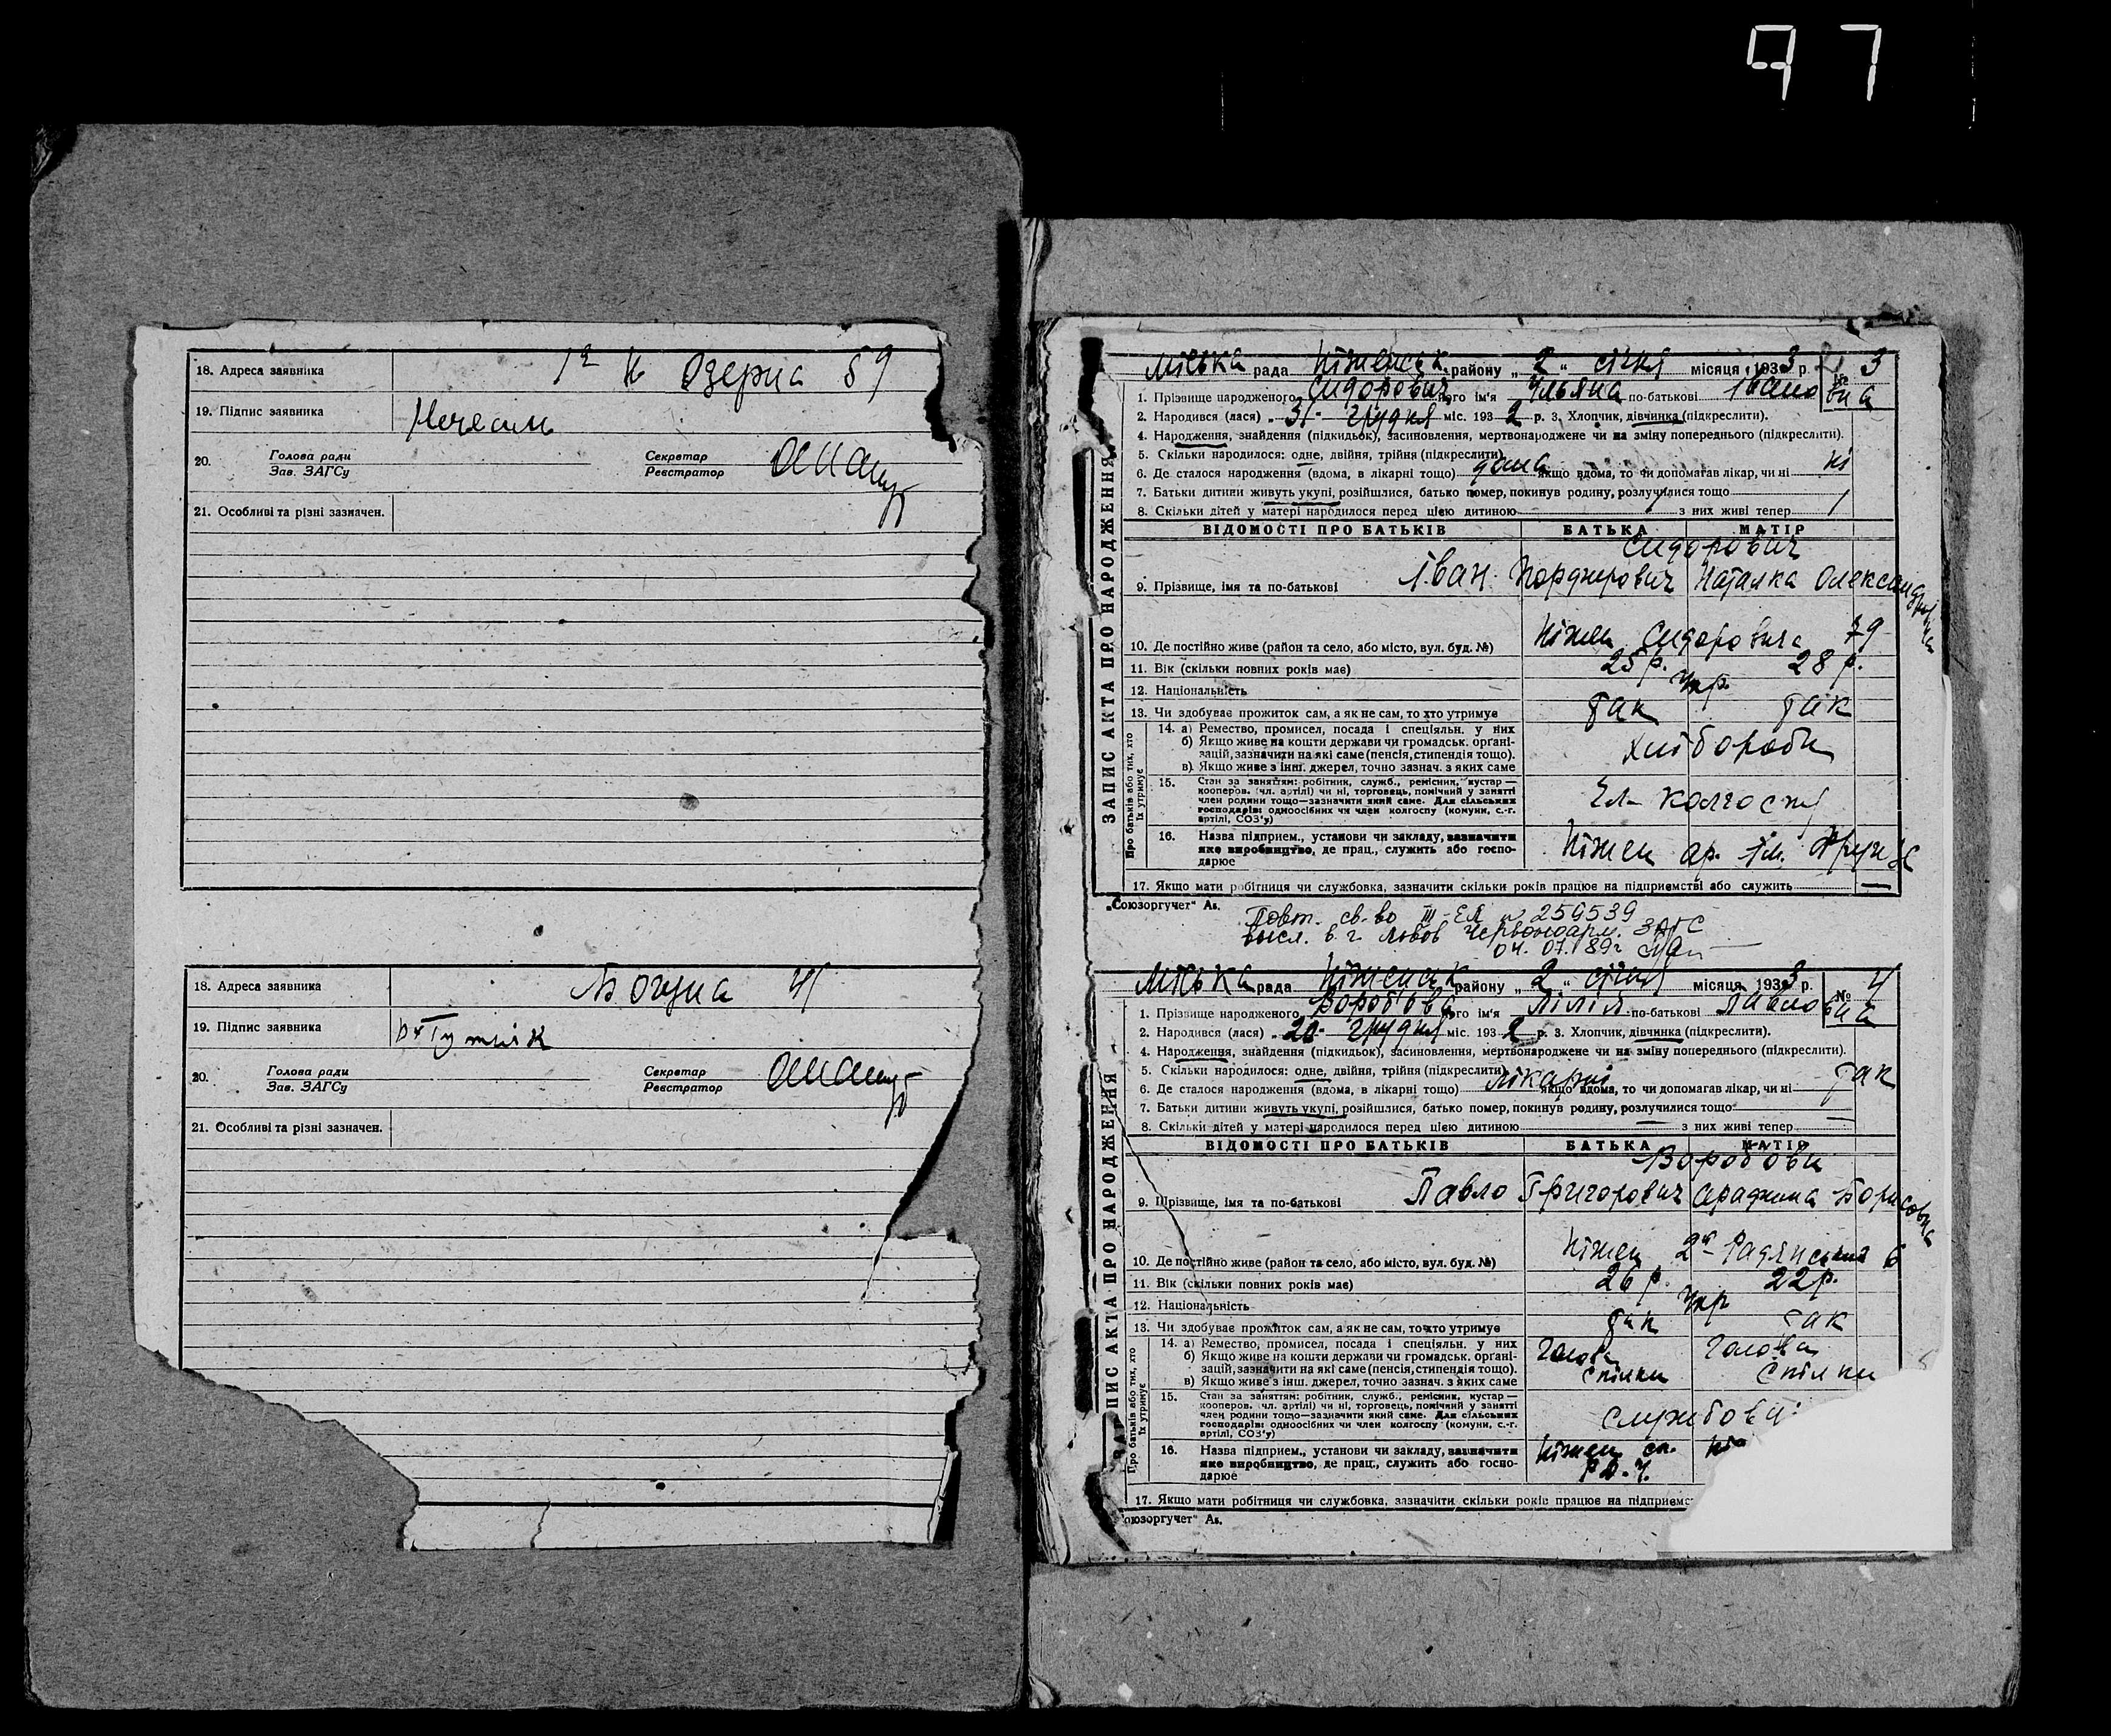 97
18. Адреса заявника 1а Н Озерна 59
19. Підпис заявника
20. Голова ради Секретар
Зав. ЗАГСу Реєстратор
21. Особливі та різні зазначен.
18. Адреса заявника Богуна 41
19. Підпис заявника
20. Голова ради Секретар
Зав. ЗАГСу Реєстратор
21. Особливі та різні зазначен.
ЗАПИС АКТА ПРО НАРОДЖЕННЯ
Міська рада Ніженськ району „2“ січня місяця 1933 р. № 3
1. Прізвище народженого Сидорович його ім'я Ульяна по-батькові Івановна
2. Народився (лася) „31- грудня міс. 1932 р. 3. Хлопчик, дівчинка (підкреслити).
4. Народження, знайдення (підкидьок), засиновлення, мертвонароджене чи на зміну попереднього (підкреслити).
5. Скільки народилося: одне, двійня, трійня (підкреслити)
6. Де сталося народження (вдома, в лікарні тощо) дома якщо вдома, то чи допомагав лікар, чи ні ні
7. Батьки дитини живуть укупі, розійшлися, батько помер, покинув родину, розлучилися тощо
8. Скільки дітей у матері народилося перед цією дитиною 1 з них живі тепер 1
ВІДОМОСТІ ПРО БАТЬКІВ БАТЬКА МАТІР
Сидорович
9. Прізвище, імя та по-батькові Іван Наталка Олександрівна
10. Де постійно живе (район та село, або місто, вул. буд. №) Ніжен Сидоровича 79
11. Вік (скільки повних років має) 25 р. 28 р.
12. Національність Укр.
13. Чи здобуває прожиток сам, а як не сам, то хто утримує так так
Про батьків або тих, хто їх утримує
14. а) Ремество, промисел, посада і спеціяльн. у них
б) Якщо живе на кошти держави чи громадськ. органі-
зацій, зазначити на які саме (пенсія, стипендія тощо).
в) Якщо живе з інш. джерел, точно зазнач. з яких саме
хлібороби
15. Стан за заняттям: робітник, служб., ремісник, кустар —
кооперов. (чл. артілі) чи ні, торговець, помічний у занятті
член родини тощо—зазначити який саме. Для сільських
господарів: одноосібних чи член колгоспу (комуни, с.-г.
артілі, СОЗ'у)
Чл- колгоспу
16. Назва підприєм., установи чи закладу, зазначити
яке виробництво, де прац., служить або госпо-
дарює
Ніжен ар. ім. Фрунзе
17. Якщо мати робітниця чи службовка, зазначити скільки років працює на підприємстві або служить —
„Союзоргучет“ Ав.
Повт. св-во III-ЕЛ № 259539
высл. в г. Львов Червоноарм. ЗАГС
04.07.89г
ЗАПИС АКТА ПРО НАРОДЖЕННЯ
Міська рада Ніженськ району „2“ січня місяця 1933 р. № 4
1. Прізвище народженого Вороб'ова його ім'я Лілія по-батькові Павловна
2. Народився (лася) „20- грудня міс. 1932 р. 3. Хлопчик, дівчинка (підкреслити).
4. Народження, знайдення (підкидьок), засиновлення, мертвонароджене чи на зміну попереднього (підкреслити).
5. Скільки народилося: одне, двійня, трійня (підкреслити)
6. Де сталося народження (вдома, в лікарні тощо) лікарні якщо вдома, то чи допомагав лікар, чи ні так
7. Батьки дитини живуть укупі, розійшлися, батько помер, покинув родину, розлучилися тощо —
8. Скільки дітей у матері народилося перед цією дитиною — з них живі тепер —
ВІДОМОСТІ ПРО БАТЬКІВ БАТЬКА МАТІР
Вороб'ови
9. Прізвище, імя та по-батькові Павло Григорович Серафима Борисовна
10. Де постійно живе (район та село, або місто, вул. буд. №) Ніжен 2а- Радянська 6
11. Вік (скільки повних років має) 26 р. 22 р.
12. Національність Укр
13. Чи здобуває прожиток сам, а як не сам, то хто утримує так так
Про батьків або тих, хто їх утримує
14. а) Ремество, промисел, посада і спеціяльн. у них
б) Якщо живе на кошти держави чи громадськ. органі-
зацій, зазначити на які саме (пенсія, стипендія тощо).
в) Якщо живе з інш. джерел, точно зазнач. з яких саме
Голова Голова
спілки спілки
15. Стан за заняттям: робітник, служб., ремісник, кустар —
кооперов. (чл. артілі) чи ні, торговець, помічний у занятті
член родини тощо—зазначити який саме. Для сільських
господарів: одноосібних чи член колгоспу (комуни, с.-г.
артілі, СОЗ'у)
службовці
16. Назва підприєм., установи чи закладу, зазначити
яке виробництво, де прац., служить або госпо-
дарює
Ніжен сп. Ні
17. Якщо мати робітниця чи службовка, зазначити скільки років працює на підприємс
оюзоргучет“ Ав.